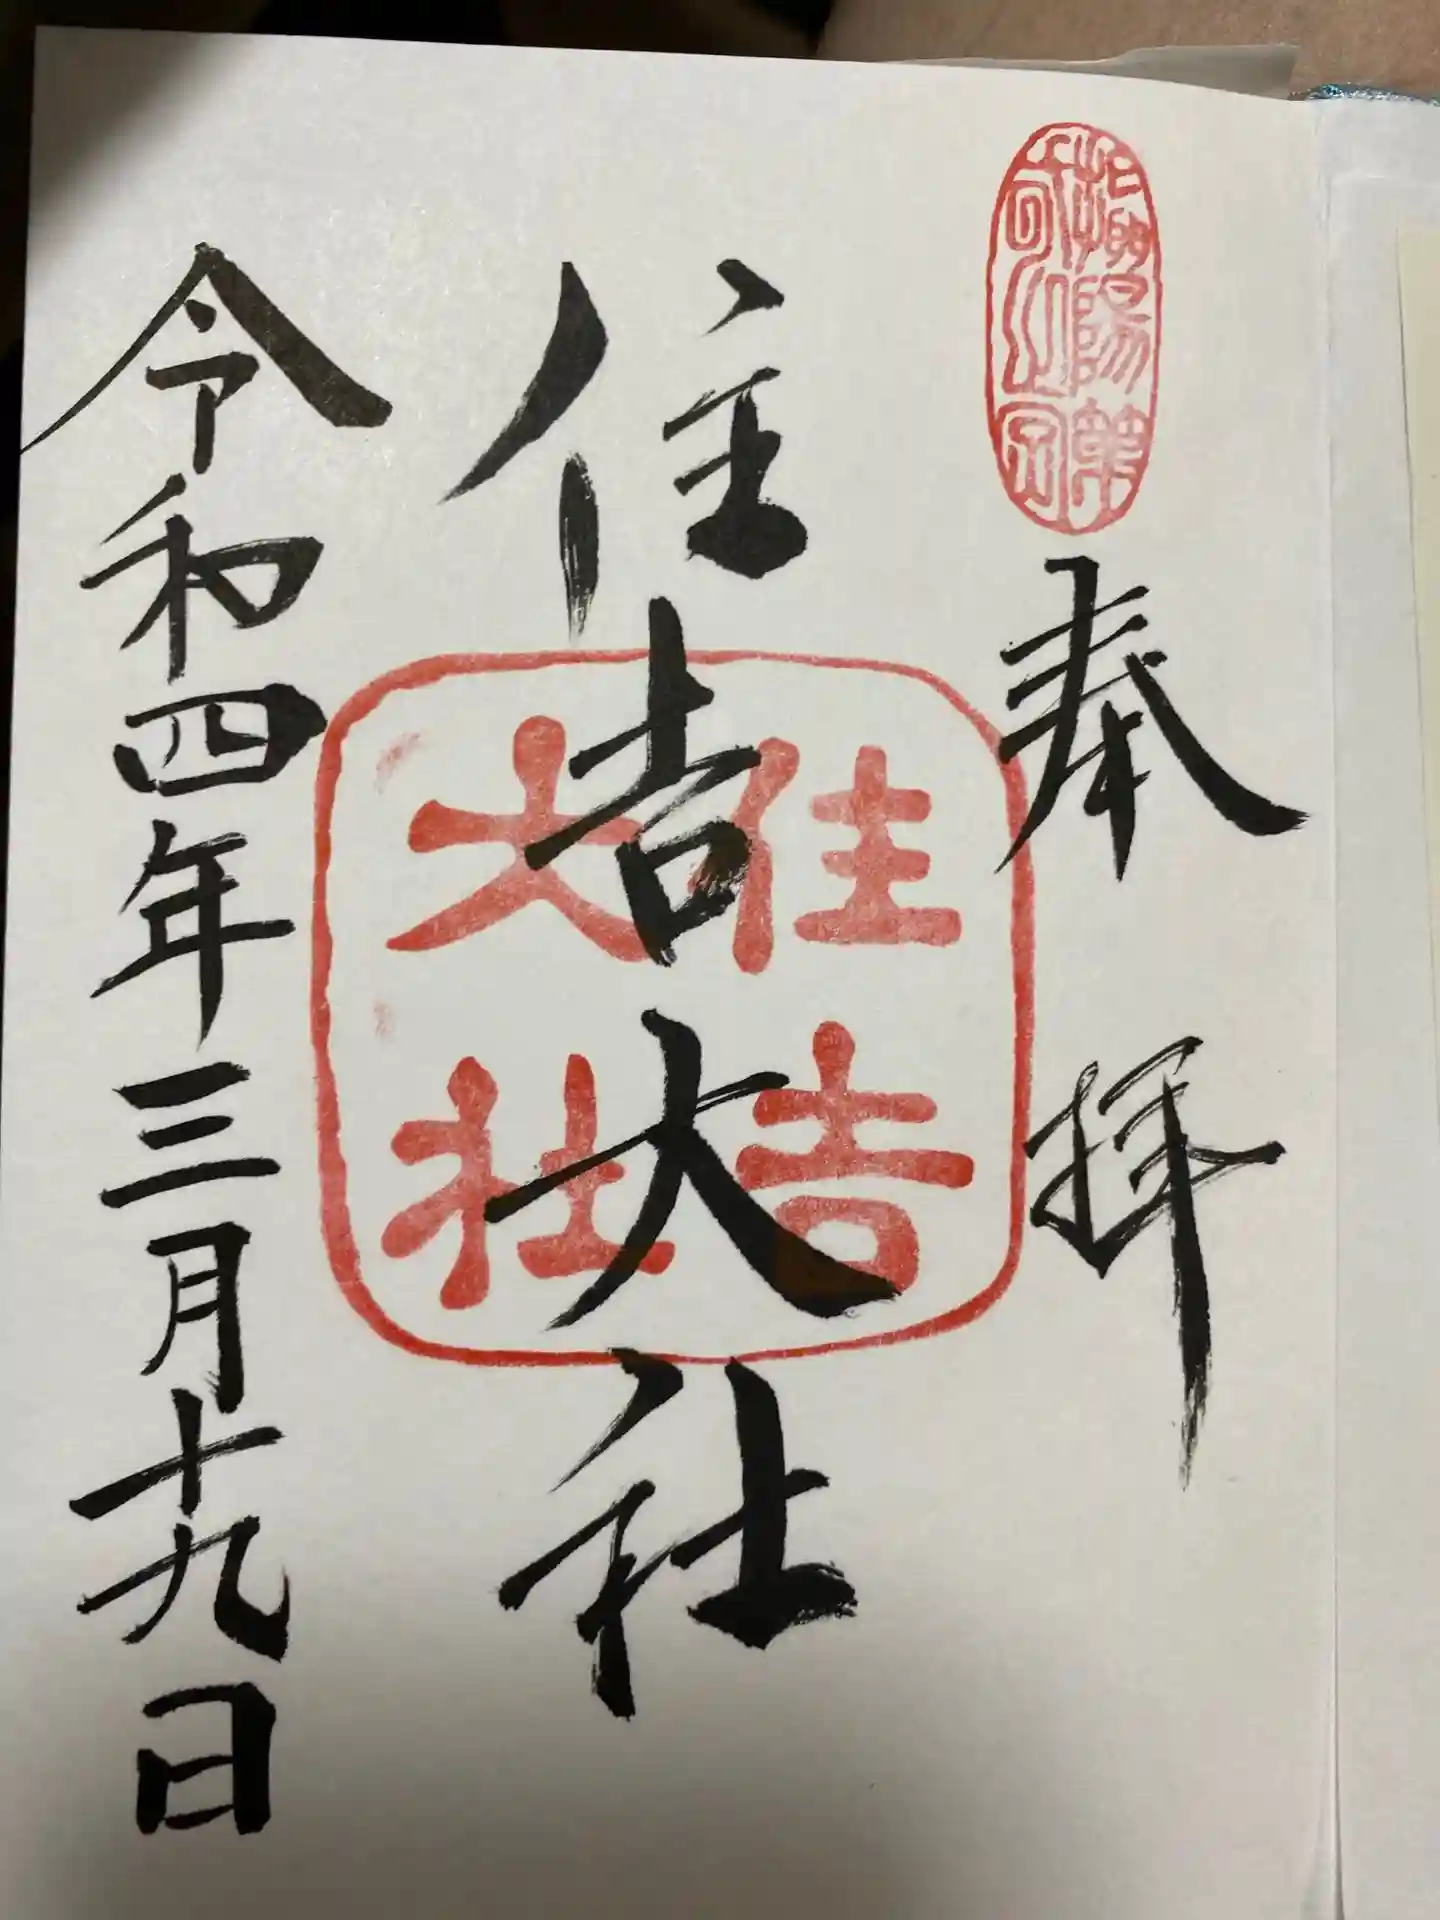 奉拝
住吉大社
住吉
大社
令和四年三月十九日